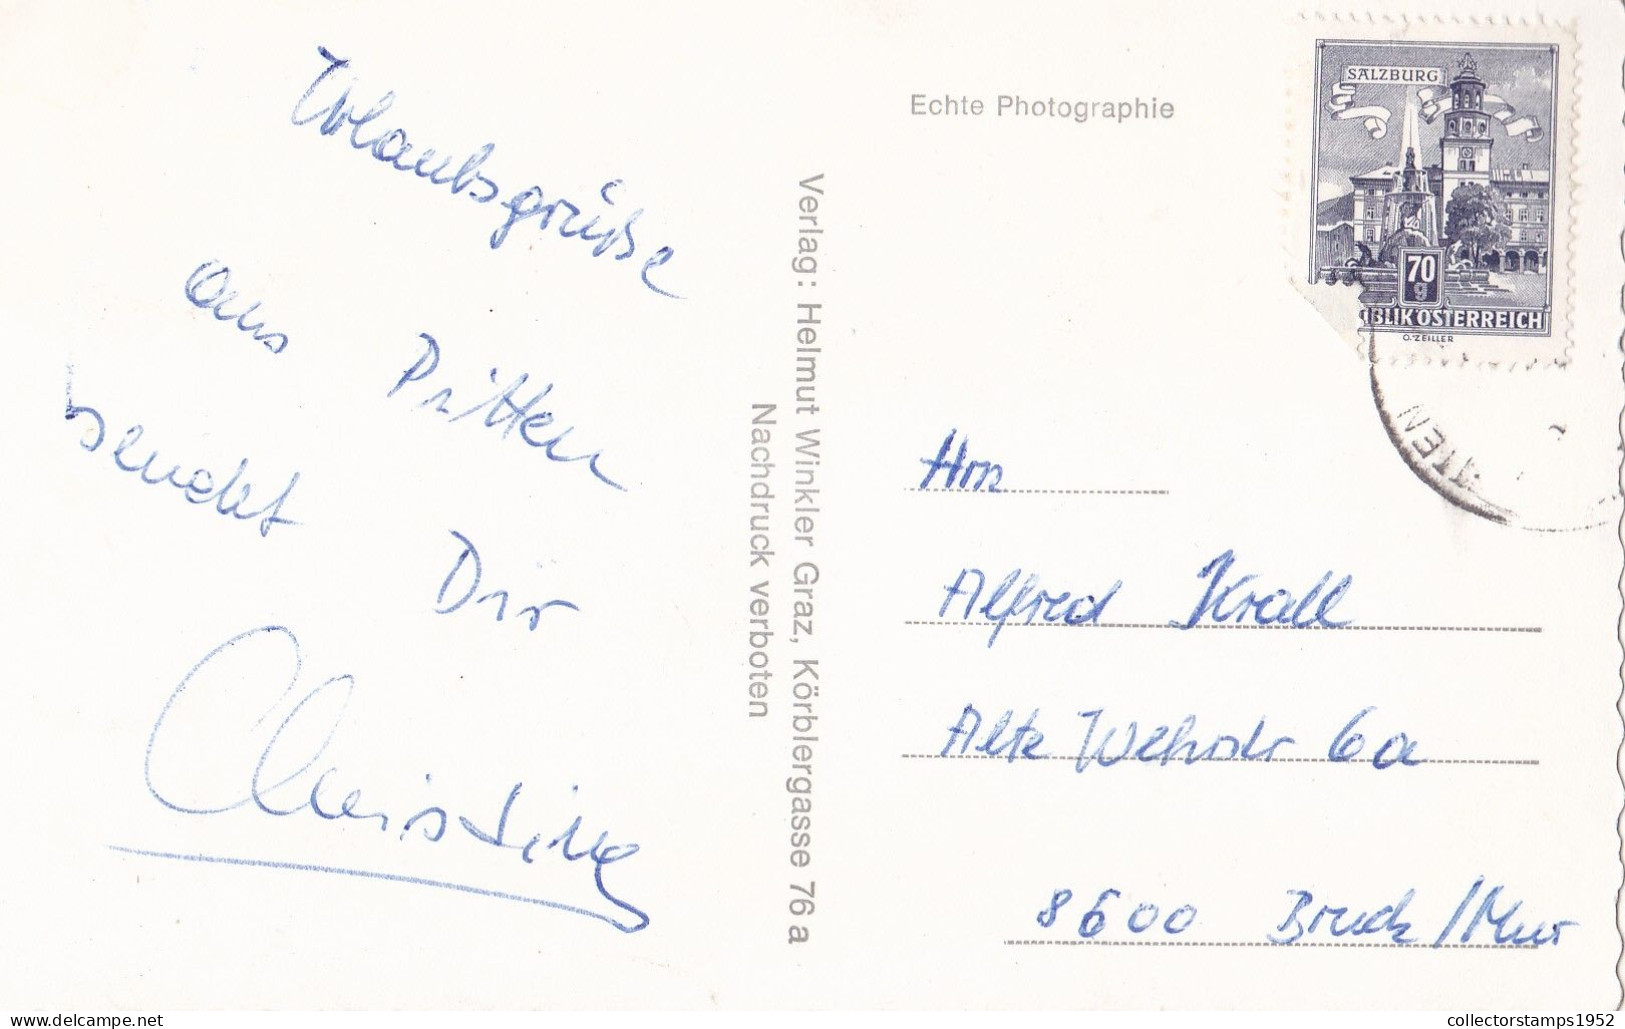 Urlaubsgrüße
aus Pitten
sendet Dir
Christine
Verlag: Helmut Winkler Graz, Körblergasse 76 a
Nachdruck verboten
Echte Photographie
SALZBURG
70
g
BLIK OSTERREICH
O. ZEILLER
Hrn
Alfred Krall
Alte Wehrstr 6a
8600 Bruck/Mur
collectorstamps1952